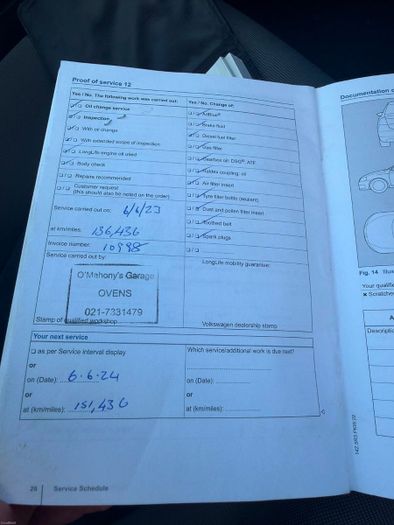 Proof of service 12
Documentation o
Yes / No. The following work was carried out:
Yes / No. Change of:
Oil change service
AdBlue®
Inspection
Brake fluid
With oil change
Diesel fuel filter
With extended scope of inspection
Gas filter
LongLife engine oil used
Gearbox oil DSG®, ATF
Body check
Haldex coupling, oil
Repairs recommended
Air filter insert
Customer request
(this should also be noted on the order)
Tyre filler bottle (sealant)
Dust and pollen filter insert
Service carried out on: 6/6/23
Toothed belt
at km/miles: 136,436
Spark plugs
Invoice number: 10998
Service carried out by:
LongLife mobility guarantee:
O'Mahony's Garage
OVENS
021-7331479
Stamp of qualified workshop
Volkswagen dealership stamp
Fig. 14 Illus
Your qualifie
Scratches
Descriptio
Your next service
as per Service interval display
Which service/additional work is due next?
or
on (Date): 6.6.24
on (Date):
or
or
at (km/miles): 151,436
at (km/miles):
28 | Service Schedule